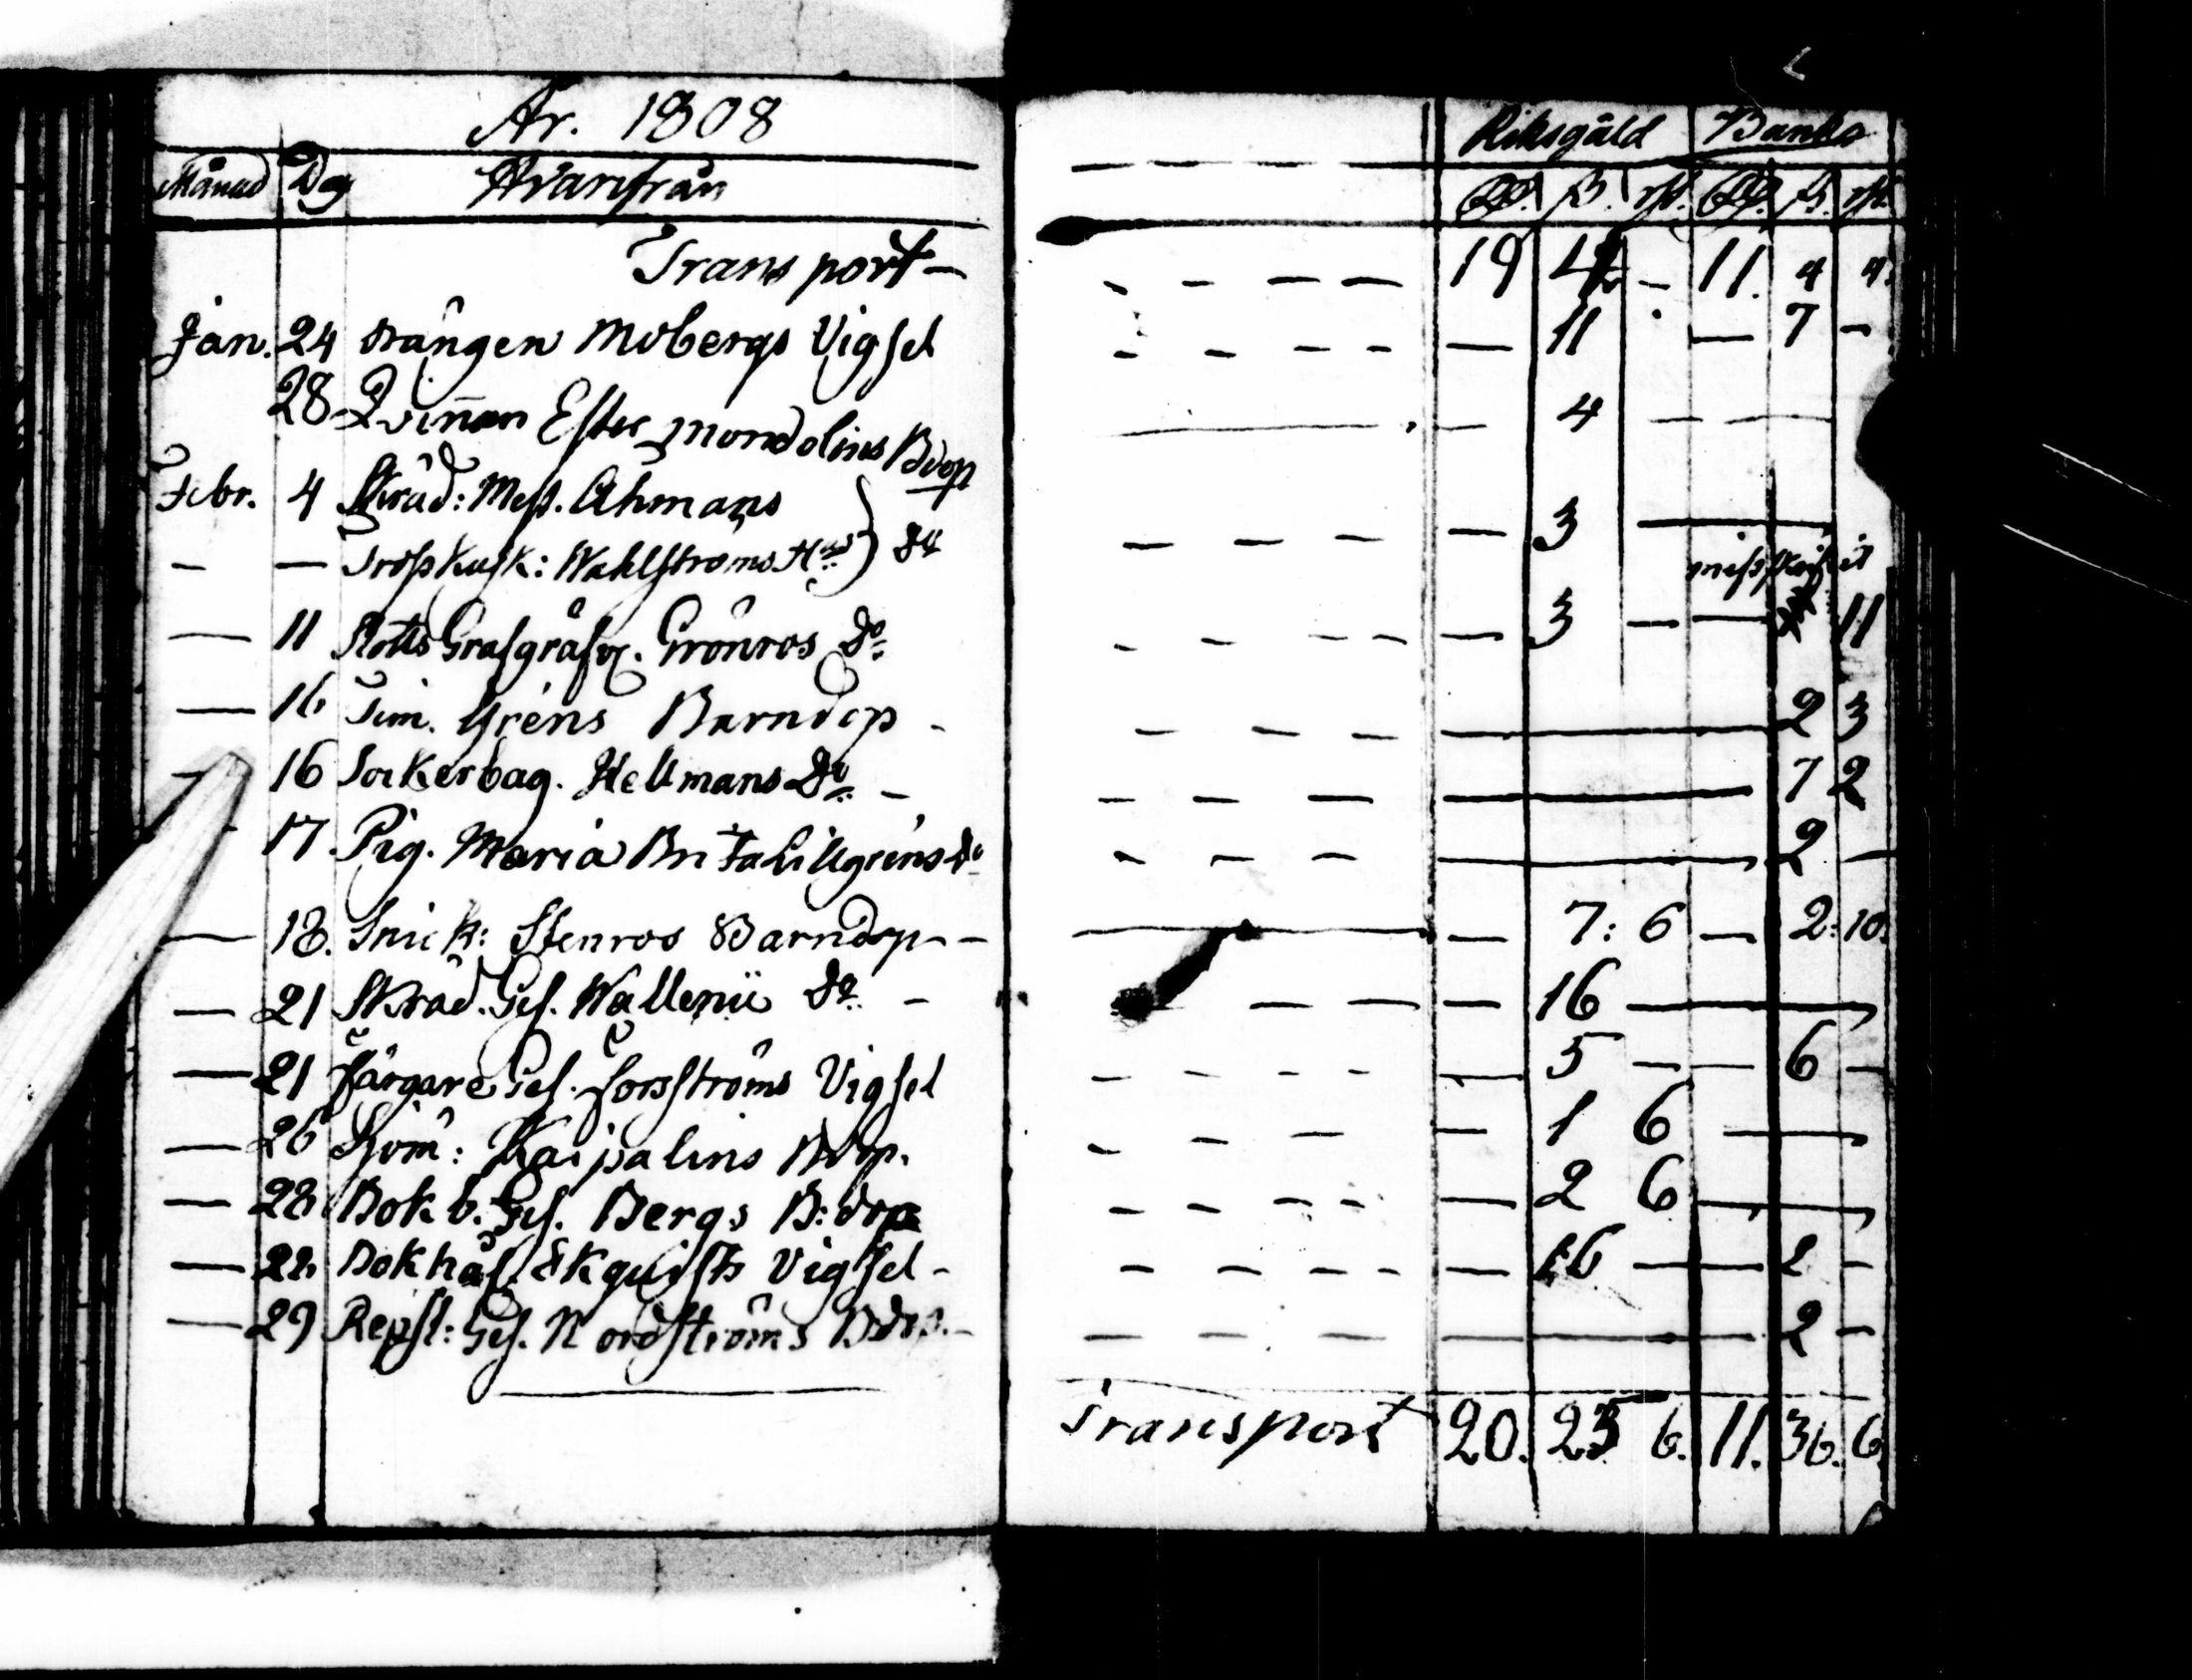 År. 1808 Riksgäld Banko
Månad Dag Hvarifrån Rd. ß. rst. Rd. ß. rst.
Transport - 19 4 - 11. 4 4.
Jan. 24 drängen Mobergs Vigsel - 11 - 7 -
28 Qviñan Ester Mondolins Bdop - 4 - -
Febr. 4 Skräd: Mest. Åhmans - 3
- - Trosskusk: Wahlströms Hus d:o misskrifvit
- 11 Rotts Grafgräfv. Grönros d:o - 3 - - 11
- 16 Tim. Gréns Barndop - 2 3
- 16 Sockerbag. Hellmans d:o - 7 2
17. Pig. Maria Brita Lillgréns d:o 2 -
- 18. Snick: Stenros Barndop - - 7: 6 - 2: 10.
- 21 Skräd. Ges. Wallenii d:o - - 16 -
- 21 Färgare Ges. Forsströms Vigsel - 5 - - 6 -
- 26 Sjöm: Kaipalins Bdop. - 1 6 -
- 28 Bokb. Ges. Bergs B:dop - 2 6 -
- 28 Bokhål. Ekquists Vigsel - - 16 - 2 -
- 29 Repsl: Ges. Nordströms Bdop. - 2 -
Transport 20. 25 6. 11. 36. 6.